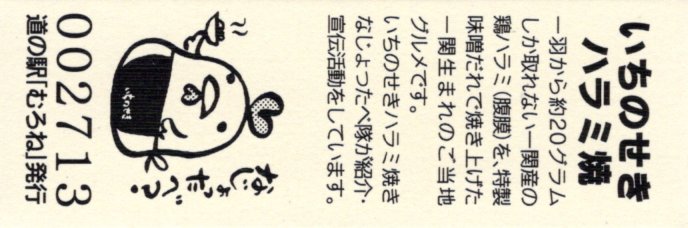 いちのせき
ハラミ焼
一羽から約20グラム
しか取れない一関産の
鶏ハラミ(腹膜)を、特製
味噌だれで焼き上げた
一関生まれのご当地
グルメです。
いちのせきハラミ焼き
なじょったべ隊が紹介・
宣伝活動をしています。
なじょ
ったべ?
002713
道の駅「むろね」発行